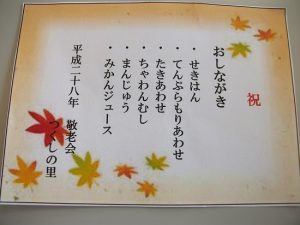 祝
おしながき
・せきはん
・てんぷらもりあわせ
・たきあわせ
・ちゃわんむし
・まんじゅう
・みかんジュース
平成二十八年　敬老会
つくしの里